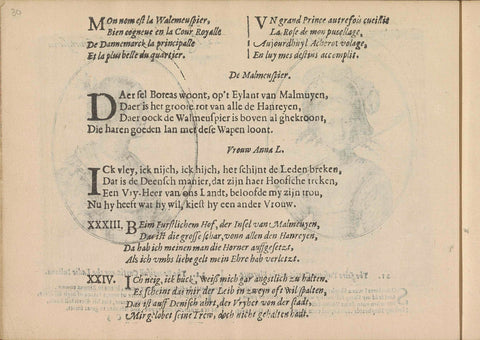 30
Mon nom est la Walemeuspier,
Bien cogneue en la Cour Royalle
De Dannemarck la principalle
Et la plus belle du quartier.
VN grand Prince autrefois cueillit
La Rose de mon pucellage,
Aujourdhuy Acherot volage,
En luy mes destins accomplit.
De Malmeuspier.
DAer sel Boreas woont, op't Eylant van Malmuyen,
Daer is het groote rot van alle de Hanreyen,
Daer oock de Walmeuspier is boven al ghekroont,
Die haren goeden lan met dese Wapen loont.
Vrouw Anna L.
ICk vley, ick nijch, ick hijch, her schijnt de Leden breken,
Dat is de Deensch manier, dat zijn haer Hooffsche treken,
Een Vry-Heer van ons Landt, beloofde my zijn trou,
Nu hy heeft wat hy wil, kiest hy een ander Vrouw.
XXXIII. BEim Furstlichem Hof, der Insel van Malmeuyen,
Dar ist die grosse schar, vonn allen den Hanreyen,
Da hab ich meinen man die Horner auffgesetzt,
Als ich vmbs liebe gelt mein Ehre hab verletzt.
XXIV. Ich neig, ich buck, weiß mich gar angstlich zu halten.
Es scheint das mir der Leib in zweyn oft wil spalten,
Das ist auff Denisch ahrt, der Vryher von der stadt,
Mir gelobet seine Trew, doch nicht gehalten hadt.